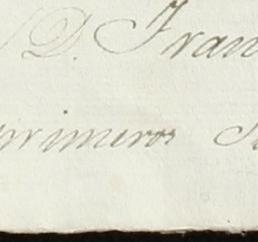 D. Fran
primeros